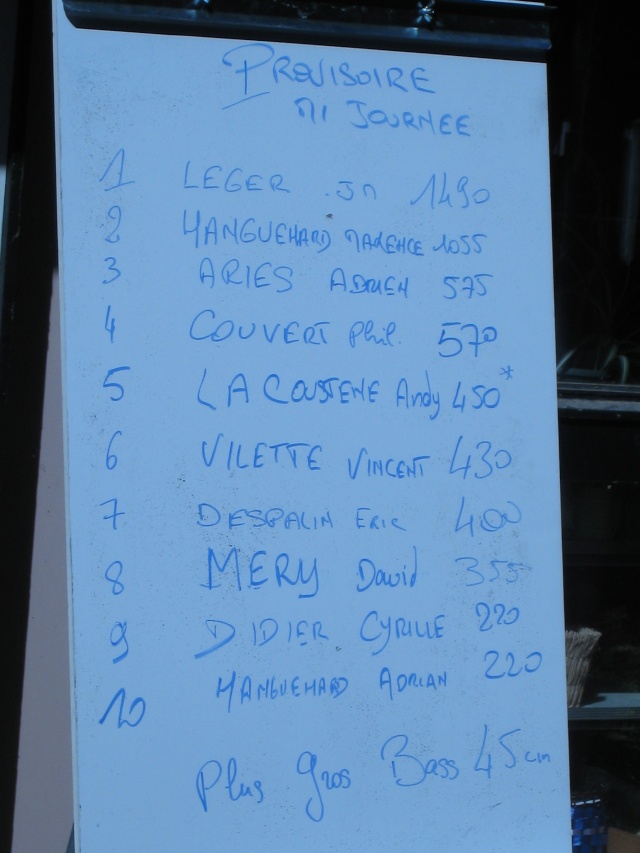 PROVISOIRE
MI JOURNEE
1 LEGER JM 1490
2 MANGUEHARD MAXENCE 1055
3 ARIES ADRIEN 575
4 COUVERT Phil. 570
5 LACOUSTENE Andy 450*
6 VILETTE VINCENT 430
7 DESPALIN ERIC 400
8 MERY David 355
9 DIDIER CYRILLE 220
10 MANGUEHARD ADRIAN 220
Plus gros Bass 45cm